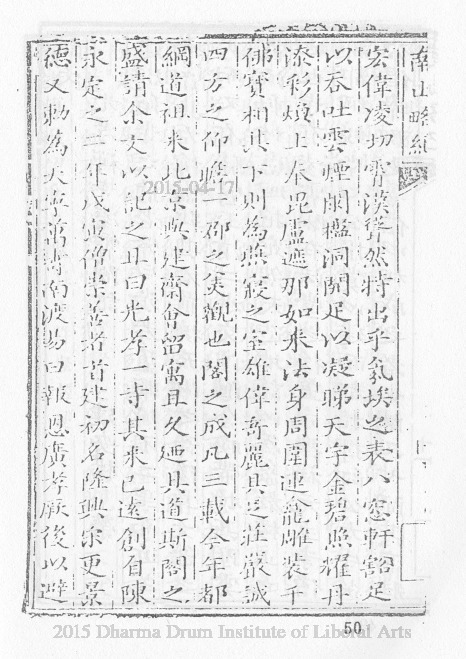 南山略紀
宏偉凌切霄漢聳然特出乎氛埃之表八窓軒豁足
以吞吐雲煙閑檻洞開足以凝睇天宇金碧照耀丹
漆彩煥上奉毘盧遮那如來法身周圍連龕雕裝千
佛寶相其下則為燕寢之室雄偉奇麗具足莊嚴誠
四方之仰瞻一郡之美觀也閣之成凡三載今年都
綱道祖來北京與建齋會留寓且久廼具道斯閣之
盛請余文以記之且曰光孝一寺其來已遠創自陳
永定之二年戊寅僧崇善者首建初名隆興宗更景
德又勅為天寧萬壽南渡易曰報恩廣孝厥後以避
2015-04-17
50
2015 Dharma Drum Institute of Liberal Arts